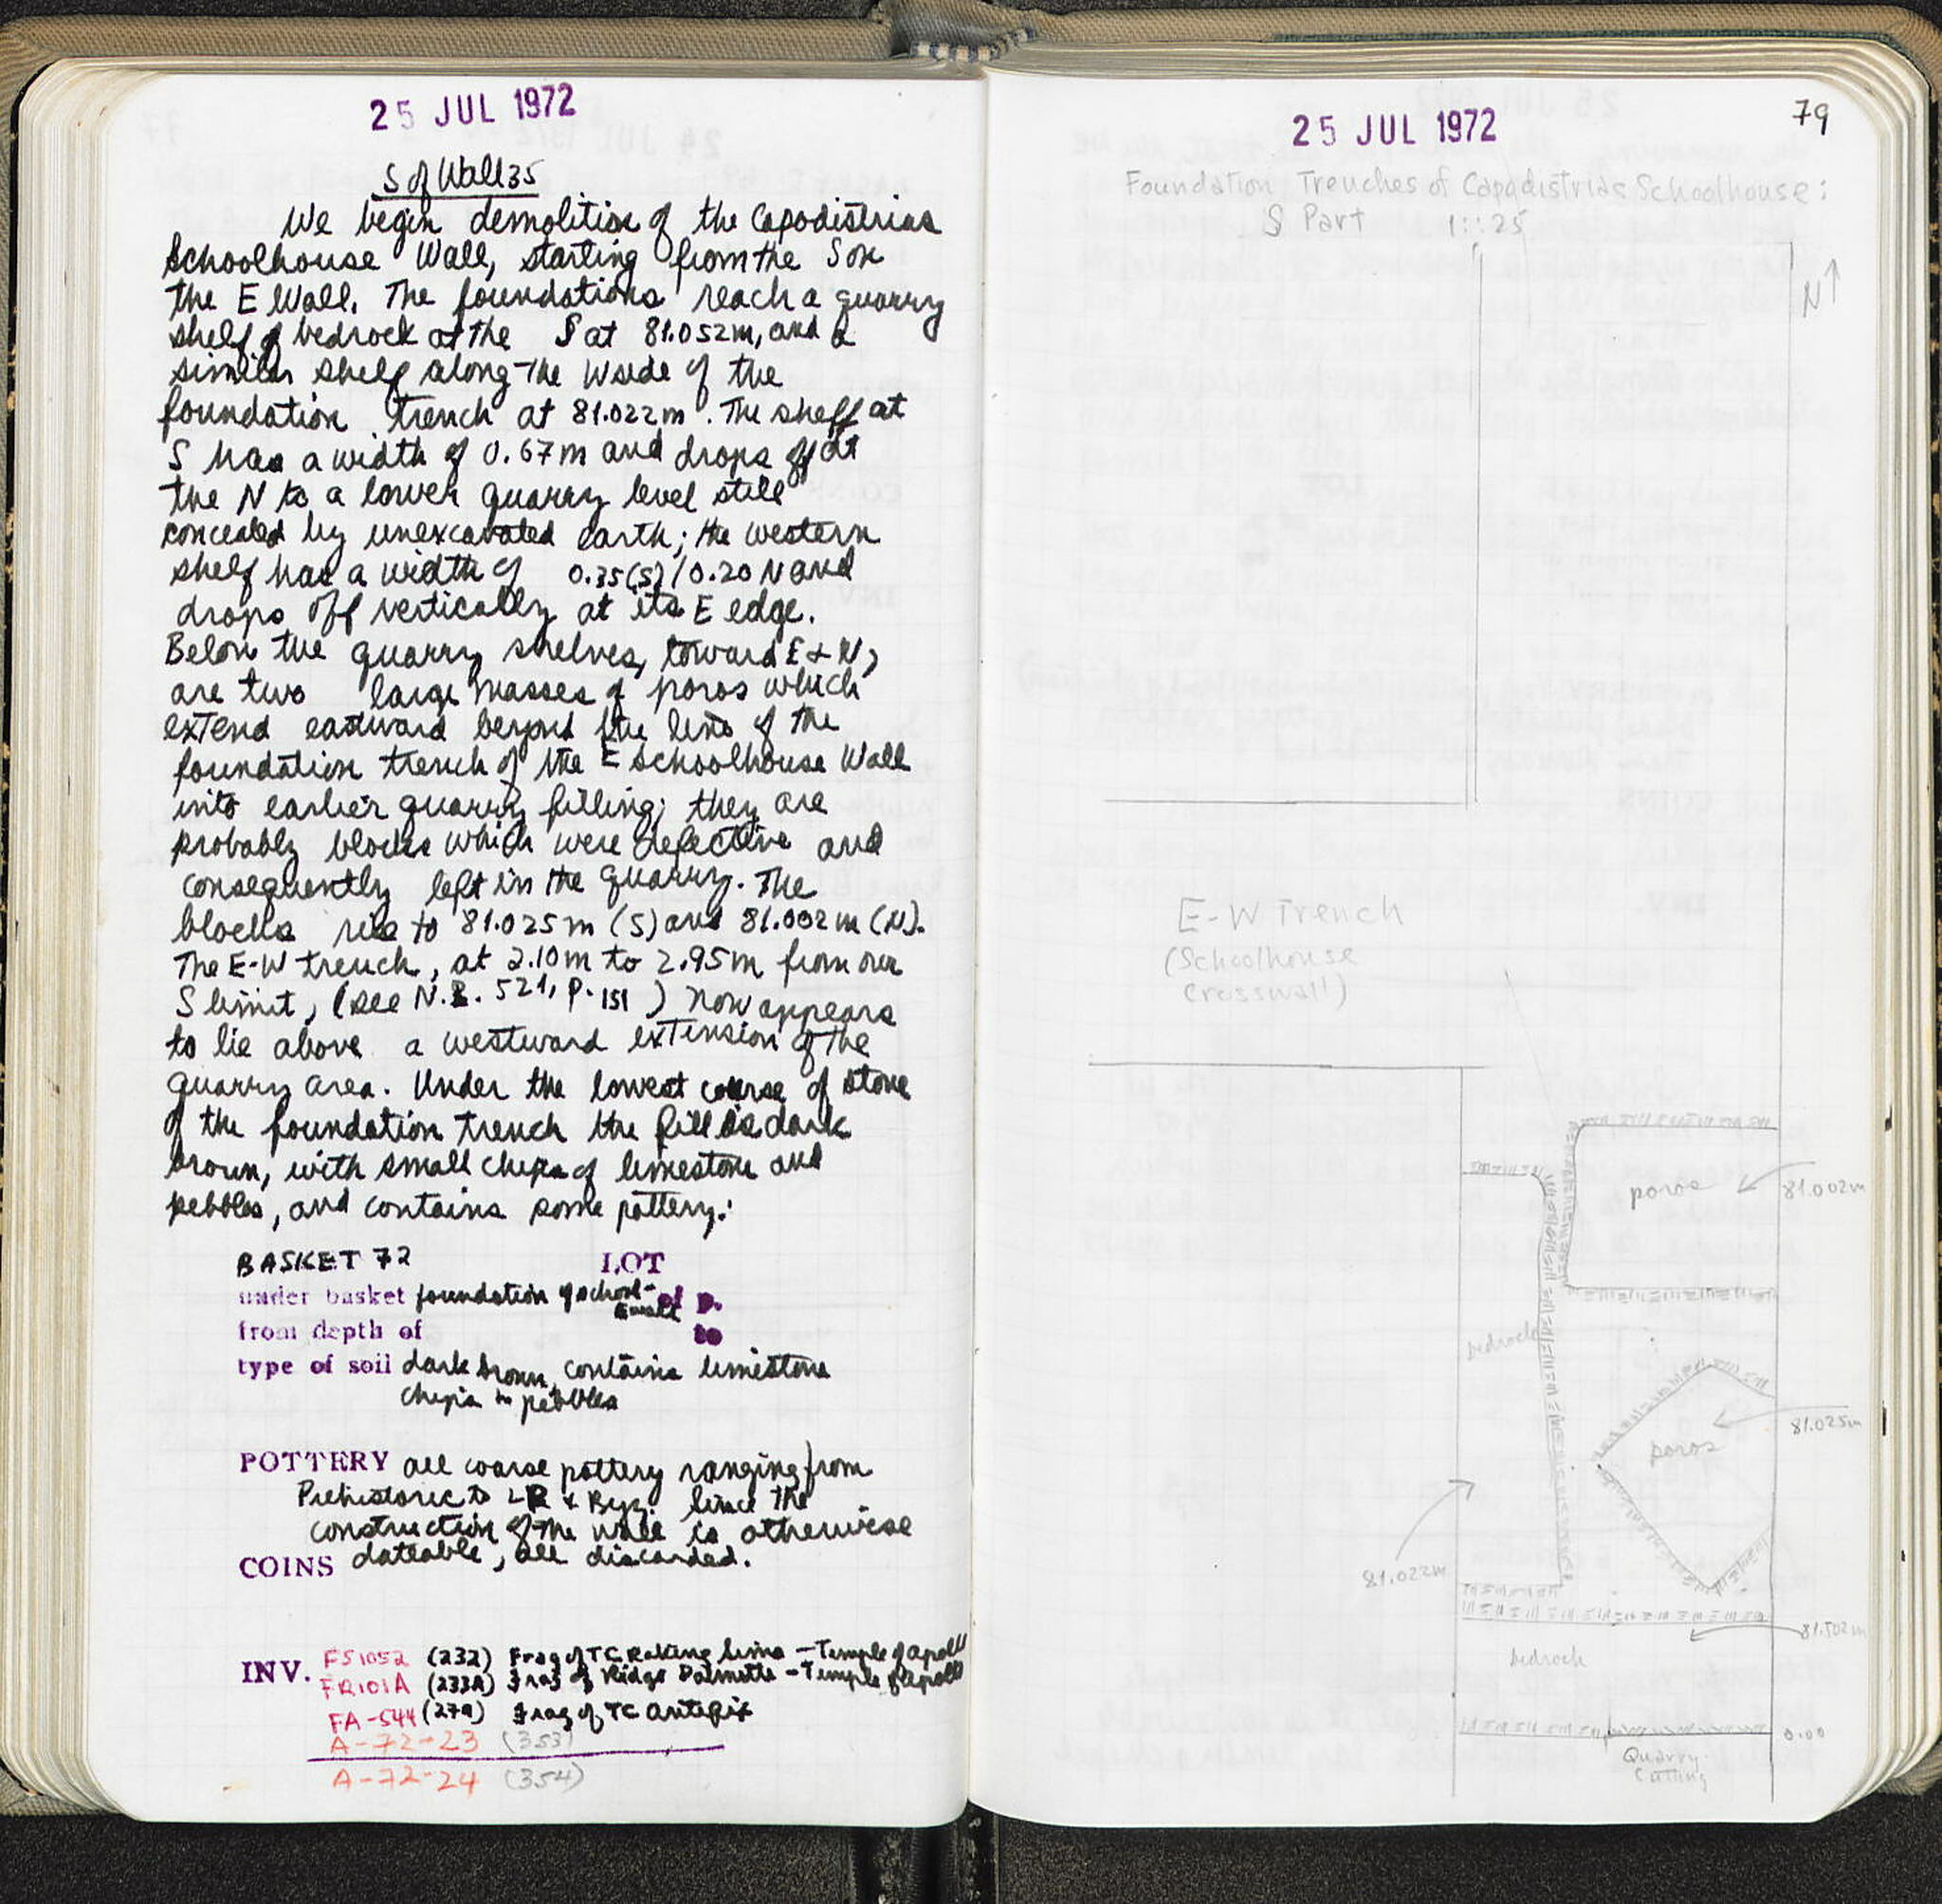 25 JUL 1972
S of Wall 35
We begin demolition of the Capodistrias
Schoolhouse Wall, starting from the S on
the E Wall. The foundations reach a quarry
shelf of bedrock at the S at 81.052m, and a
similar shelf along the W side of the
foundation trench at 81.022m. The shelf at
S has a width of 0.67m and drops off at
the N to a lower quarry level still
concealed by unexcavated earth; the western
shelf has a width of 0.35(S)/0.20 N and
drops off vertically at its E edge.
Below the quarry shelves, toward E & N,
are two large masses of poros which
extend eastward beyond the line of the
foundation trench of the E Schoolhouse Wall
into earlier quarry filling; they are
probably blocks which were defective and
consequently left in the quarry. The
blocks rise to 81.025m (S) and 81.002m (N).
The E-W trench, at 2.10m to 2.95m from our
S limit, (see N.B. 521, P. 151) now appears
to lie above a westward extension of the
quarry area. Under the lowest course of stone
of the foundation trench the fill is dark
brown, with small chips of limestone and
pebbles, and contains some pottery:
BASKET 72 LOT
under basket foundation of school- E wall of p.
from depth of to
type of soil dark brown, contains limestone
chips + pebbles
POTTERY all coarse pottery ranging from
Prehistoric to LR & Byz. Since the
construction of the wall is otherwise
dateable, all discarded.
COINS
INV. FS1052 (232) Frag of TC Raking Sima - Temple of Apollo
FR101A (233A) Frag of Ridge Palmette - Temple of Apollo
FA-544 (27a) Frag of TC Antefix
A-72-23 (353)
A-72-24 (354)
79
25 JUL 1972
Foundation Trenches of Capodistrias Schoolhouse:
S Part 1::25
N
E-W Trench
(Schoolhouse
Crosswall)
poros
81.002m
bedrock
81.025m
poros
81.022m
81.502m
bedrock
0.00
Quarry
Cutting